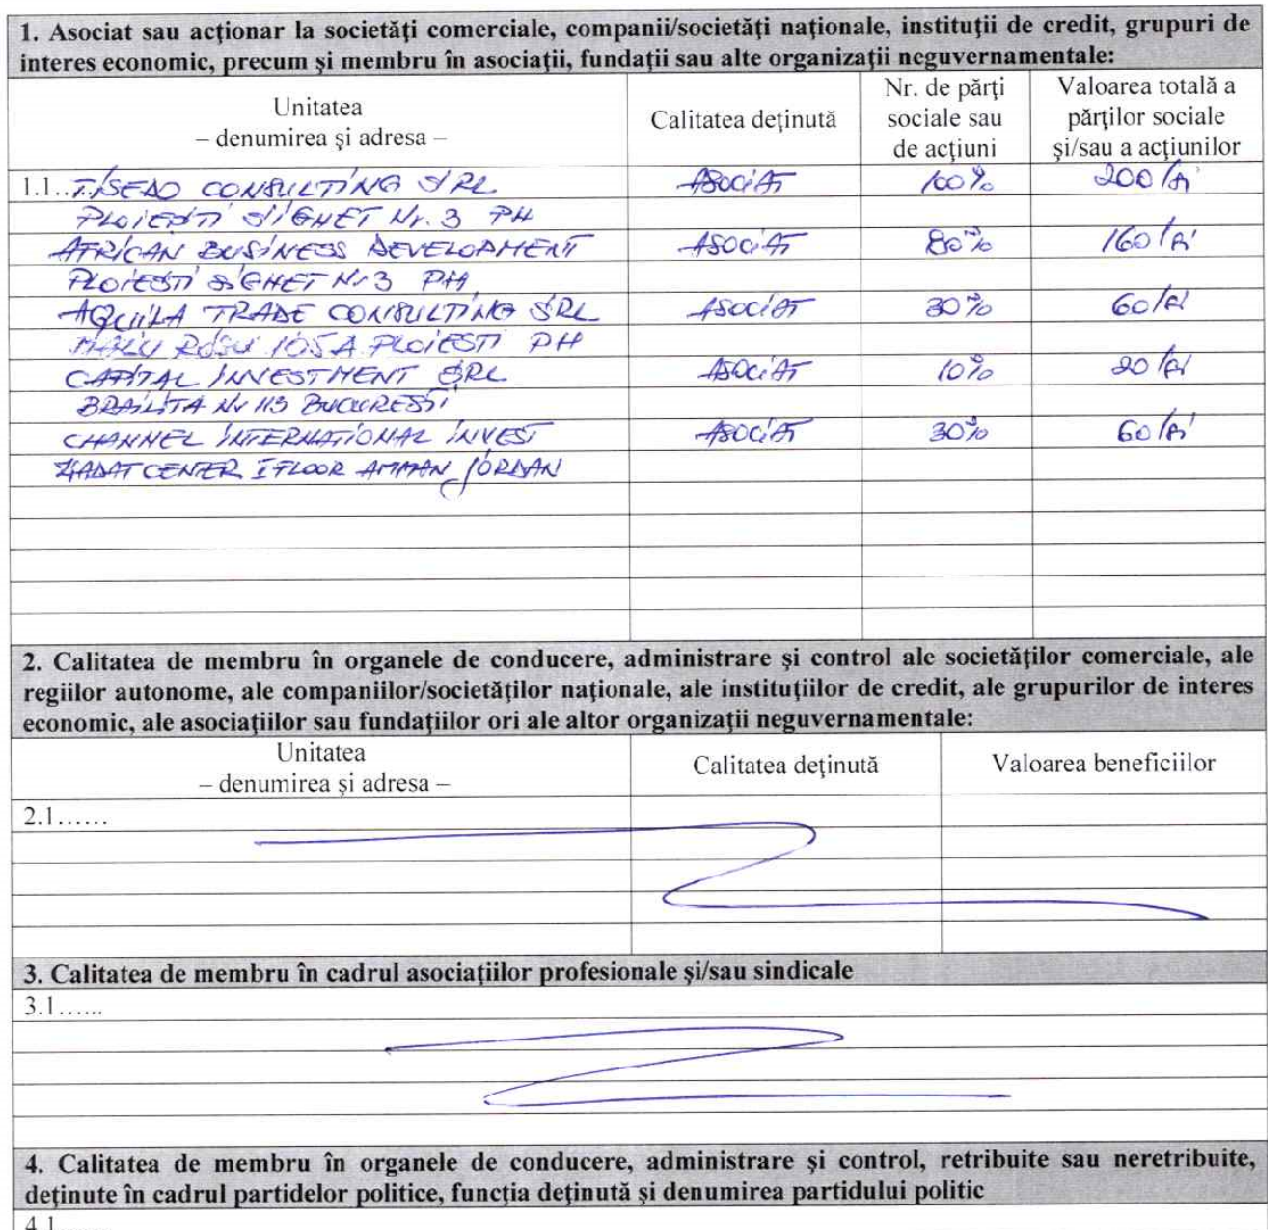 1. Asociat sau acţionar la societăţi comerciale, companii/societăţi naţionale, instituţii de credit, grupuri de
interes economic, precum şi membru în asociaţii, fundaţii sau alte organizaţii neguvernamentale:
Unitatea
– denumirea şi adresa –
Calitatea deţinută
Nr. de părţi
sociale sau
de acţiuni
Valoarea totală a
părţilor sociale
şi/sau a acţiunilor
1.1.. CONSULTING SRL ASOCIAT 100% 200 lei
PLOIESTI SIGHET Nr. 3 PH
AFRICAN BUSINESS DEVELOPMENT ASOCIAT 80% 160 lei
PLOIESTI SIGHET Nr 3 PH
AQUILA TRADE CONSULTING SRL ASOCIAT 30% 60 lei
MALU ROSU 105A PLOIESTI PH
CAPITAL INVESTMENT SRL ASOCIAT 10% 20 lei
BRAILITA Nr 113 BUCURESTI
CHANNEL INTERNATIONAL INVEST ASOCIAT 30% 60 lei
CENTER I FLOOR AMMAN JORDAN
2. Calitatea de membru în organele de conducere, administrare şi control ale societăţilor comerciale, ale
regiilor autonome, ale companiilor/societăţilor naţionale, ale instituţiilor de credit, ale grupurilor de interes
economic, ale asociaţiilor sau fundaţiilor ori ale altor organizaţii neguvernamentale:
Unitatea
– denumirea şi adresa –
Calitatea deţinută
Valoarea beneficiilor
2.1......
3. Calitatea de membru în cadrul asociaţiilor profesionale şi/sau sindicale
3.1......
4. Calitatea de membru în organele de conducere, administrare şi control, retribuite sau neretribuite,
deţinute în cadrul partidelor politice, funcţia deţinută şi denumirea partidului politic
4.1......